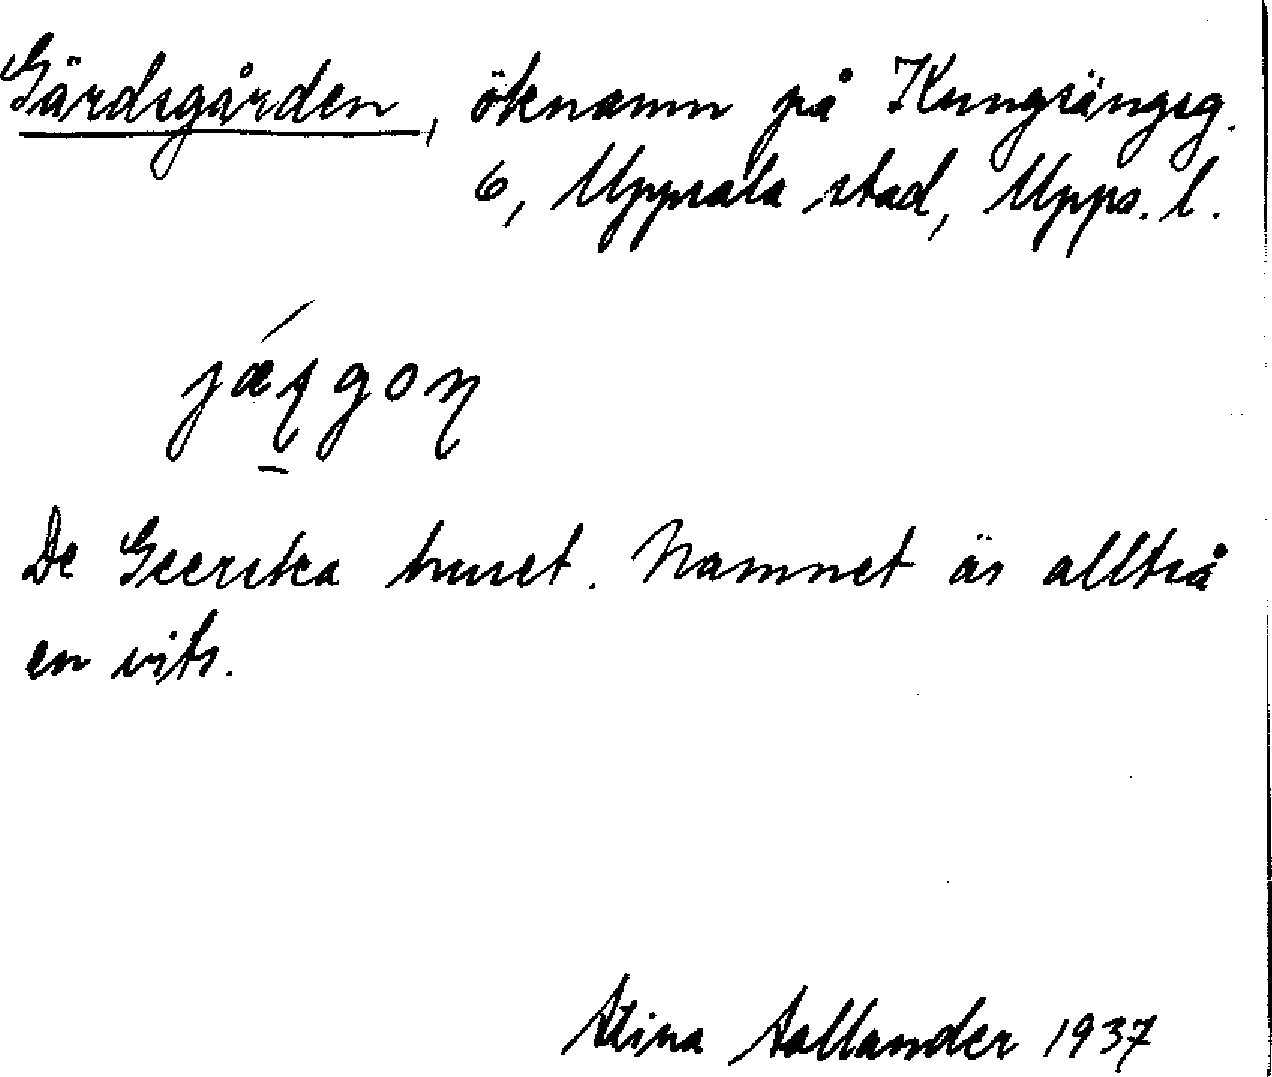 Gärdsgården, öknamn på Kungsängsg.
6, Uppsala stad, Upps. l.
De Geerska huset. Namnet är alltså
en vits.
Stina Sallander 1937